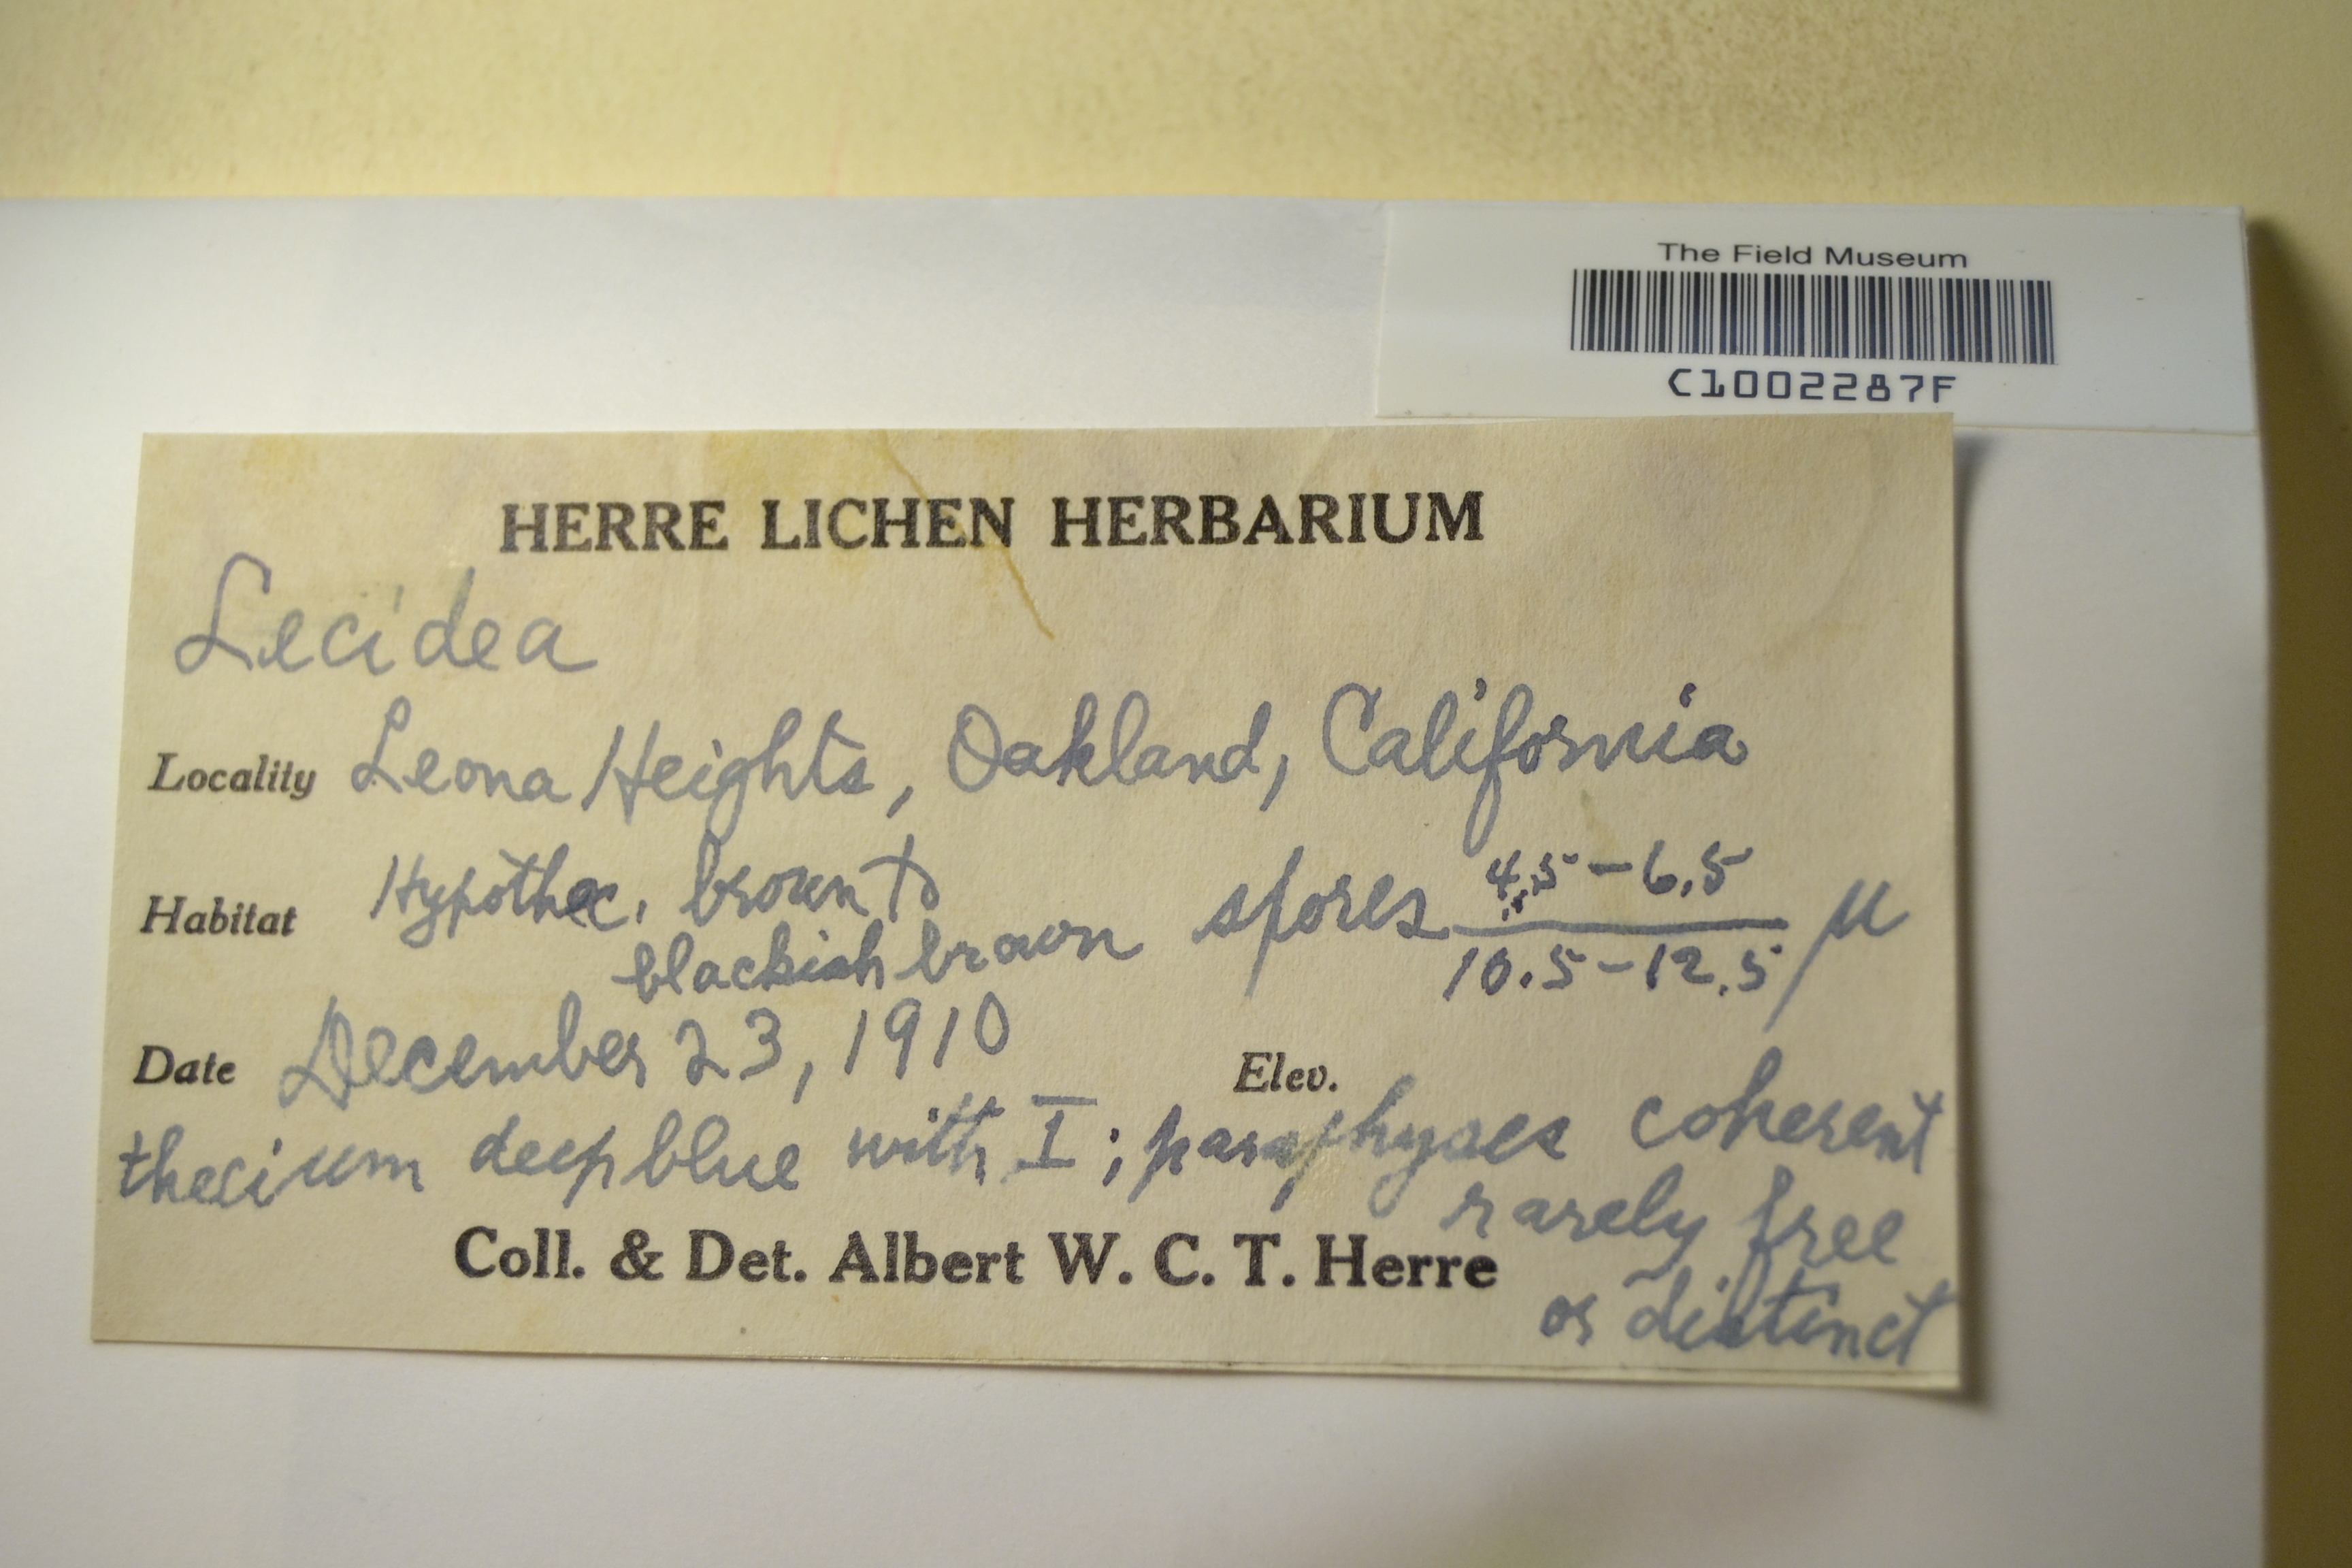 The Field Museum
C1002287F
HERRE LICHEN HERBARIUM
Lecidea
Locality Leona Heights, Oakland, California
Habitat Hypothec. brown to
blackish brown spores 4.5-6.5
10.5-12.5 µ
Date December 23, 1910 Elev.
thecium deep blue with I; paraphyses coherent
rarely free
Coll. & Det. Albert W. C. T. Herre
or distinct